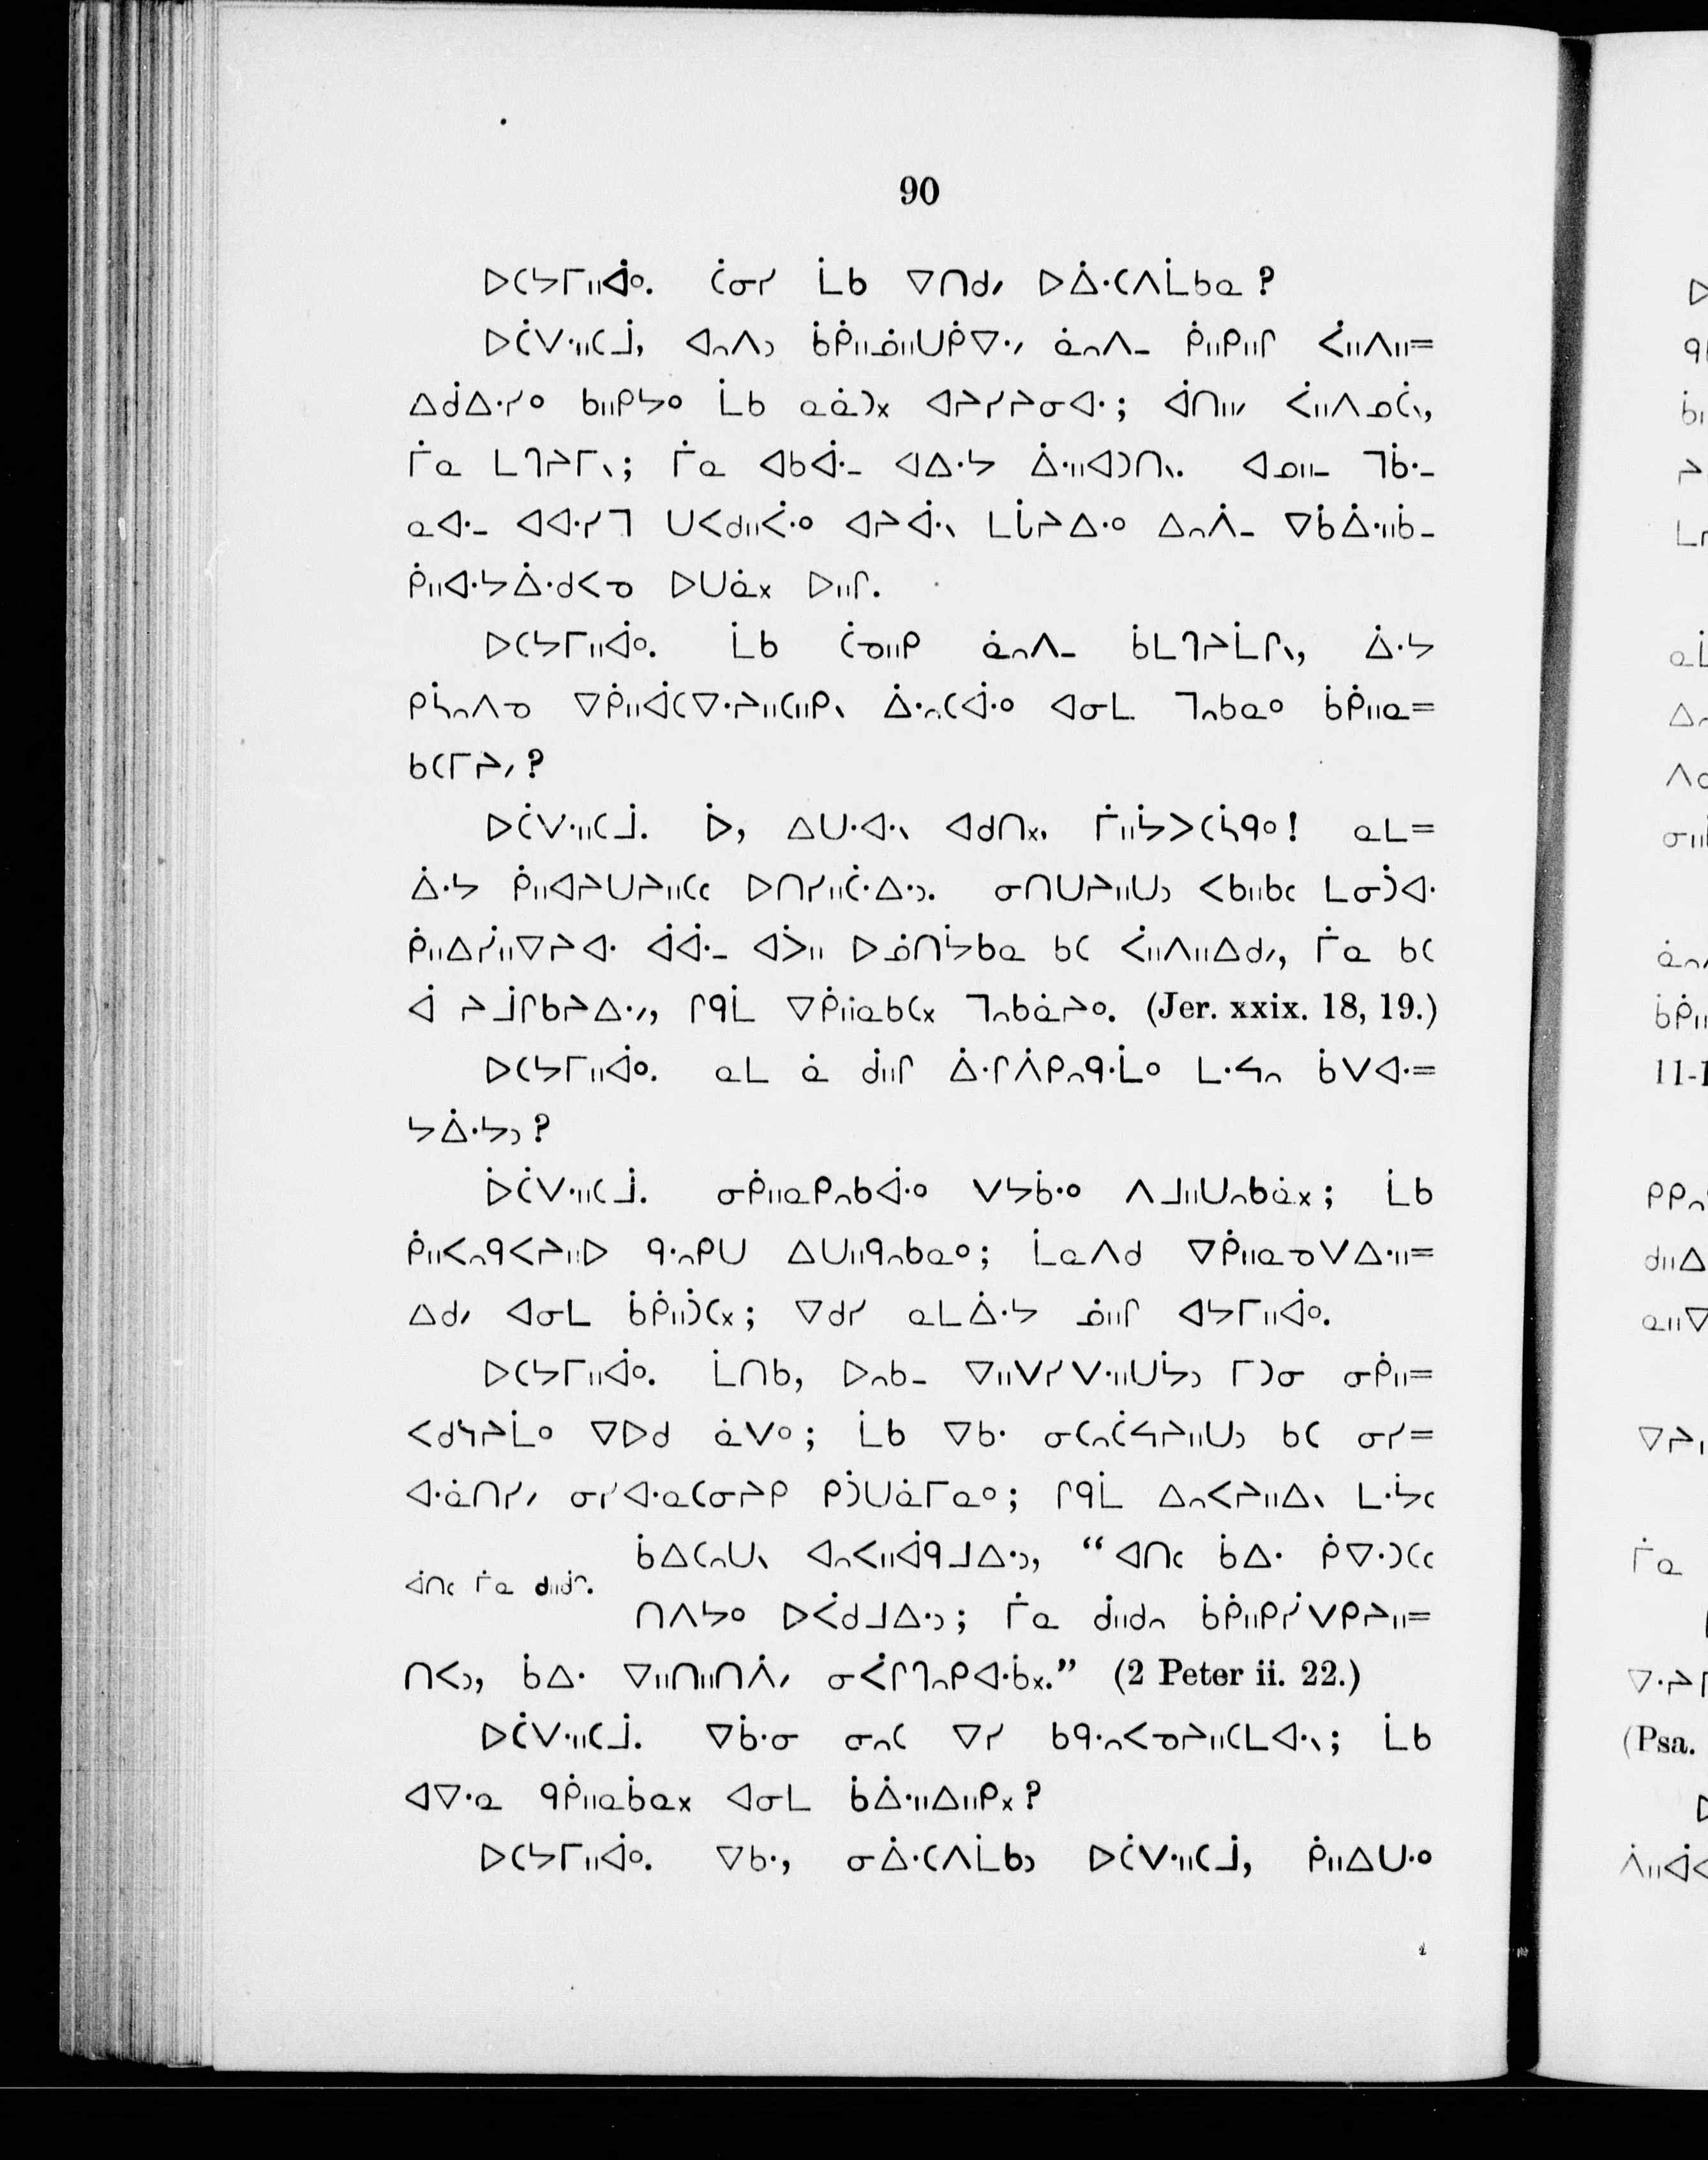 90
ᐅᑕᔭᒥᐦᐋᐤ. ᑖᓂᓯ ᒫᑲ ᐁᑎᑯᐟ ᐅᐄᐧᑕᐱᒫᑲᓇ?
ᐅᑖᐯᐧᐦᑕᒨ, ᐊᐢᐱᐣ ᑳᑮᐦᓅᐦᑌᑮᐁᐧᐟ ᓈᐢᐱᐨ ᑮᐦᑭᐦᒋ ᐹᐦᐱᐦ=
ᐃᑰᐃᐧᓯᐤ ᑲᐦᑭᔭᐤ ᒫᑲ ᓇᓈᑐᕽ ᐊᔨᓯᔨᓂᐊᐧ; ᐋᑎᐦᐟ ᐹᐦᐱᓄᑖᐠ,
ᒦᓇ ᒪᒉᔨᒥᐠ; ᒦᓇ ᐊᑲᐋᐧᐨ ᐊᐃᐧᔭ ᐄᐧᐦᐊᑐᑎᐠ. ᐊᓄᐦᐨ ᒣᒁᐨ
ᓇᐊᐧᐨ ᐊᐊᐧᓯᒣ ᑌᐸᑯᐦᐹᐧᐤ ᐊᔨᐋᐧᐠ ᒪᒑᔨᐃᐧᐤ ᐃᐢᐲᐨ ᐁᑳᐄᐧᐦᑳᐨ
ᑮᐦᐊᐧᔭᐄᐧᑯᐸᓀ ᐅᑌᓈᕽ ᐅᐦᒋ.
ᐅᑕᔭᒥᐦᐋᐤ. ᒫᑲ ᑖᓀᐦᑭ ᓈᐢᐱᐨ ᑳᒪᒉᔨᒫᒋᐠ, ᐄᐧᔭ
ᑭᓵᐢᐱᓀ ᐁᑮᐦᐋᑕᐁᐧᔨᐦᑕᐦᑭᐠ ᐄᐧᐢᑕᐋᐧᐤ ᐊᓂᒪ ᒣᐢᑲᓇᐤ ᑳᑮᐦᓇ=
ᑲᑕᒥᔨᐟ?
ᐅᑖᐯᐧᐦᑕᒨ. ᐆ, ᐃᑌᐧᐊᐧᐠ ᐊᑯᑎᕽ. ᒦᐦᔮᐳᑕᓵᑫᐤ! ᓇᒪ=
ᐄᐧᔭ ᑮᐦᐊᔨᑌᔨᐦᑕᒼ ᐅᑎᓯᐦᑖᐧᐃᐧᐣ. ᓂᑎᑌᔨᐦᑌᐣ ᐸᑲᐦᑲᒼ ᒪᓂᑑᐊᐧ
ᑮᐦᐃᓰᐦᐁᔨᐊᐧ ᐋᐋᐧᐨ ᐊᐴᐦ ᐅᓅᑎᔮᑲᓇ ᑲᑕ ᐹᐦᐱᐦᐃᑯᐟ, ᒦᓇ ᑲᑕ
ᐋ ᔨᒨᒋᑲᔨᐃᐧᐟ, ᒋᑫᒫ ᐁᑮᐦᓇᑲᑕᕽ ᒣᐢᑲᓈᔨᐤ. (Jer. xxix. 18, 19.)
ᐅᑕᔭᒥᐦᐋᐤ. ᓇᒪ ᓈ ᑰᐦᒋ ᐄᐧᒋᐲᑭᐢᑫᐧᒫᐤ ᒪᐧᔕᐢ ᑳᐯᐊᐧ=
ᔭᐄᐧᔭᐣ?
ᐆᑖᐯᐧᐦᑕᒨ. ᓂᑮᐦᓇᑭᐢᑲᐋᐧᐤ ᐯᔭᒁᐤ ᐱᒧᐦᑌᐢᑲᓈᕽ; ᒫᑲ
ᑮᐦᐸᐢᑫᐸᔨᐦᐅ ᑫᐧᐢᑭᑌ ᐃᑌᐦᑫᐢᑲᓇᐤ; ᒫᓇᐱᑯ ᐁᑮᐦᓇᓀᐯᐃᐧᐦ=
ᐃᑯᐟ ᐊᓂᒪ ᑳᑮᐦᑑᑕᕽ; ᐁᑯᓯ ᓇᒪᐄᐧᔭ ᓅᐦᒋ ᐊᔭᒥᐦᐋᐤ.
ᐅᑕᔭᒥᐦᐋᐤ. ᒫᑎᑲ, ᐅᐢᑲᐨ ᐁᐦᐯᓯᐯᐧᐦᑌᔮᐣ ᒥᑐᓂ ᓂᑮᐦ=
ᐸᑯᓭᔨᒫᐤ ᐁᐅᑯ ᓈᐯᐤ; ᒫᑲ ᐁᑲᐧ ᓂᑕᐢᑖᓭᔨᐦᑌᐣ ᑲᑕ ᓂᓯ=
ᐊᐧᓈᑎᓯᐟ ᓂᓯᐊᐧᓇᑕᓂᔨᑭ ᑭᑑᑌᓈᒥᓇᐤ; ᒋᑫᒫ ᐃᐢᐸᔨᐦᐃᐠ ᒪᐧᔮᒼ
ᑳᐃᑕᐢᑌᐠ ᐊᐢᐸᐦᐋᑫᒧᐃᐧᐣ, “ᐊᑎᒼ ᑳᐃᐧ ᑮᐁᐧᑐᑕᒼ
ᐋᑎᒼ ᒦᓇ ᑰᐦᑰᐢ.
ᑎᐱᔭᐤ ᐅᐹᑯᒧᐃᐧᐣ; ᒦᓇ ᑰᐦᑯᐢ ᑳᑮᐦᑭᓰᐯᑭᔨᐦ=
ᑎᐸᐣ, ᑳᐃᐧ ᐁᐦᑎᐦᑎᐲᐟ ᓂᐹᒋᒉᐢᑭᐊᐧᑳᕽ.” (2 Peter ii. 22.)
ᐅᑖᐯᐧᐦᑕᒨ. ᐁᑳᐧᓂ ᓂᐢᑕ ᐁᓯ ᑲᑫᐧᐢᐸᓀᔨᐦᑕᒪᐊᐧᐠ; ᒫᑲ
ᐊᐁᐧᓇ ᑫᑮᐦᓇᑳᓇᕽ ᐊᓂᒪ ᑳᐄᐧᐦᐃᐦᑭᕽ?
ᐅᑕᔭᒥᐦᐋᐤ. ᐁᑲᐧ, ᓂᐄᐧᑕᐱᒫᑲᐣ ᐅᑖᐯᐧᐦᑕᒨ, ᑮᐦᐃᑌᐧᐤ